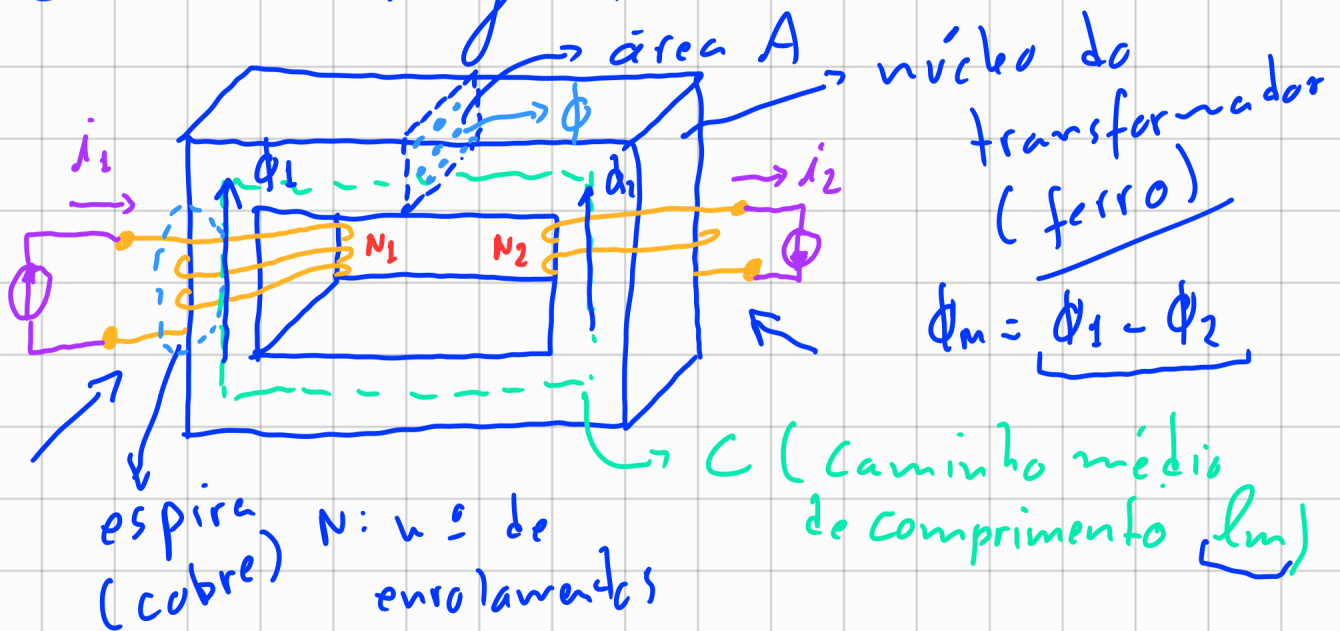 área A
núcleo do
transformador
(ferro)
ϕ
i1
ϕ1
ϕ2
i2
N1
N2
ϕm = ϕ1 - ϕ2
C (caminho médio
de comprimento lm)
espira
(cobre)
N: nº de
enrolamentos